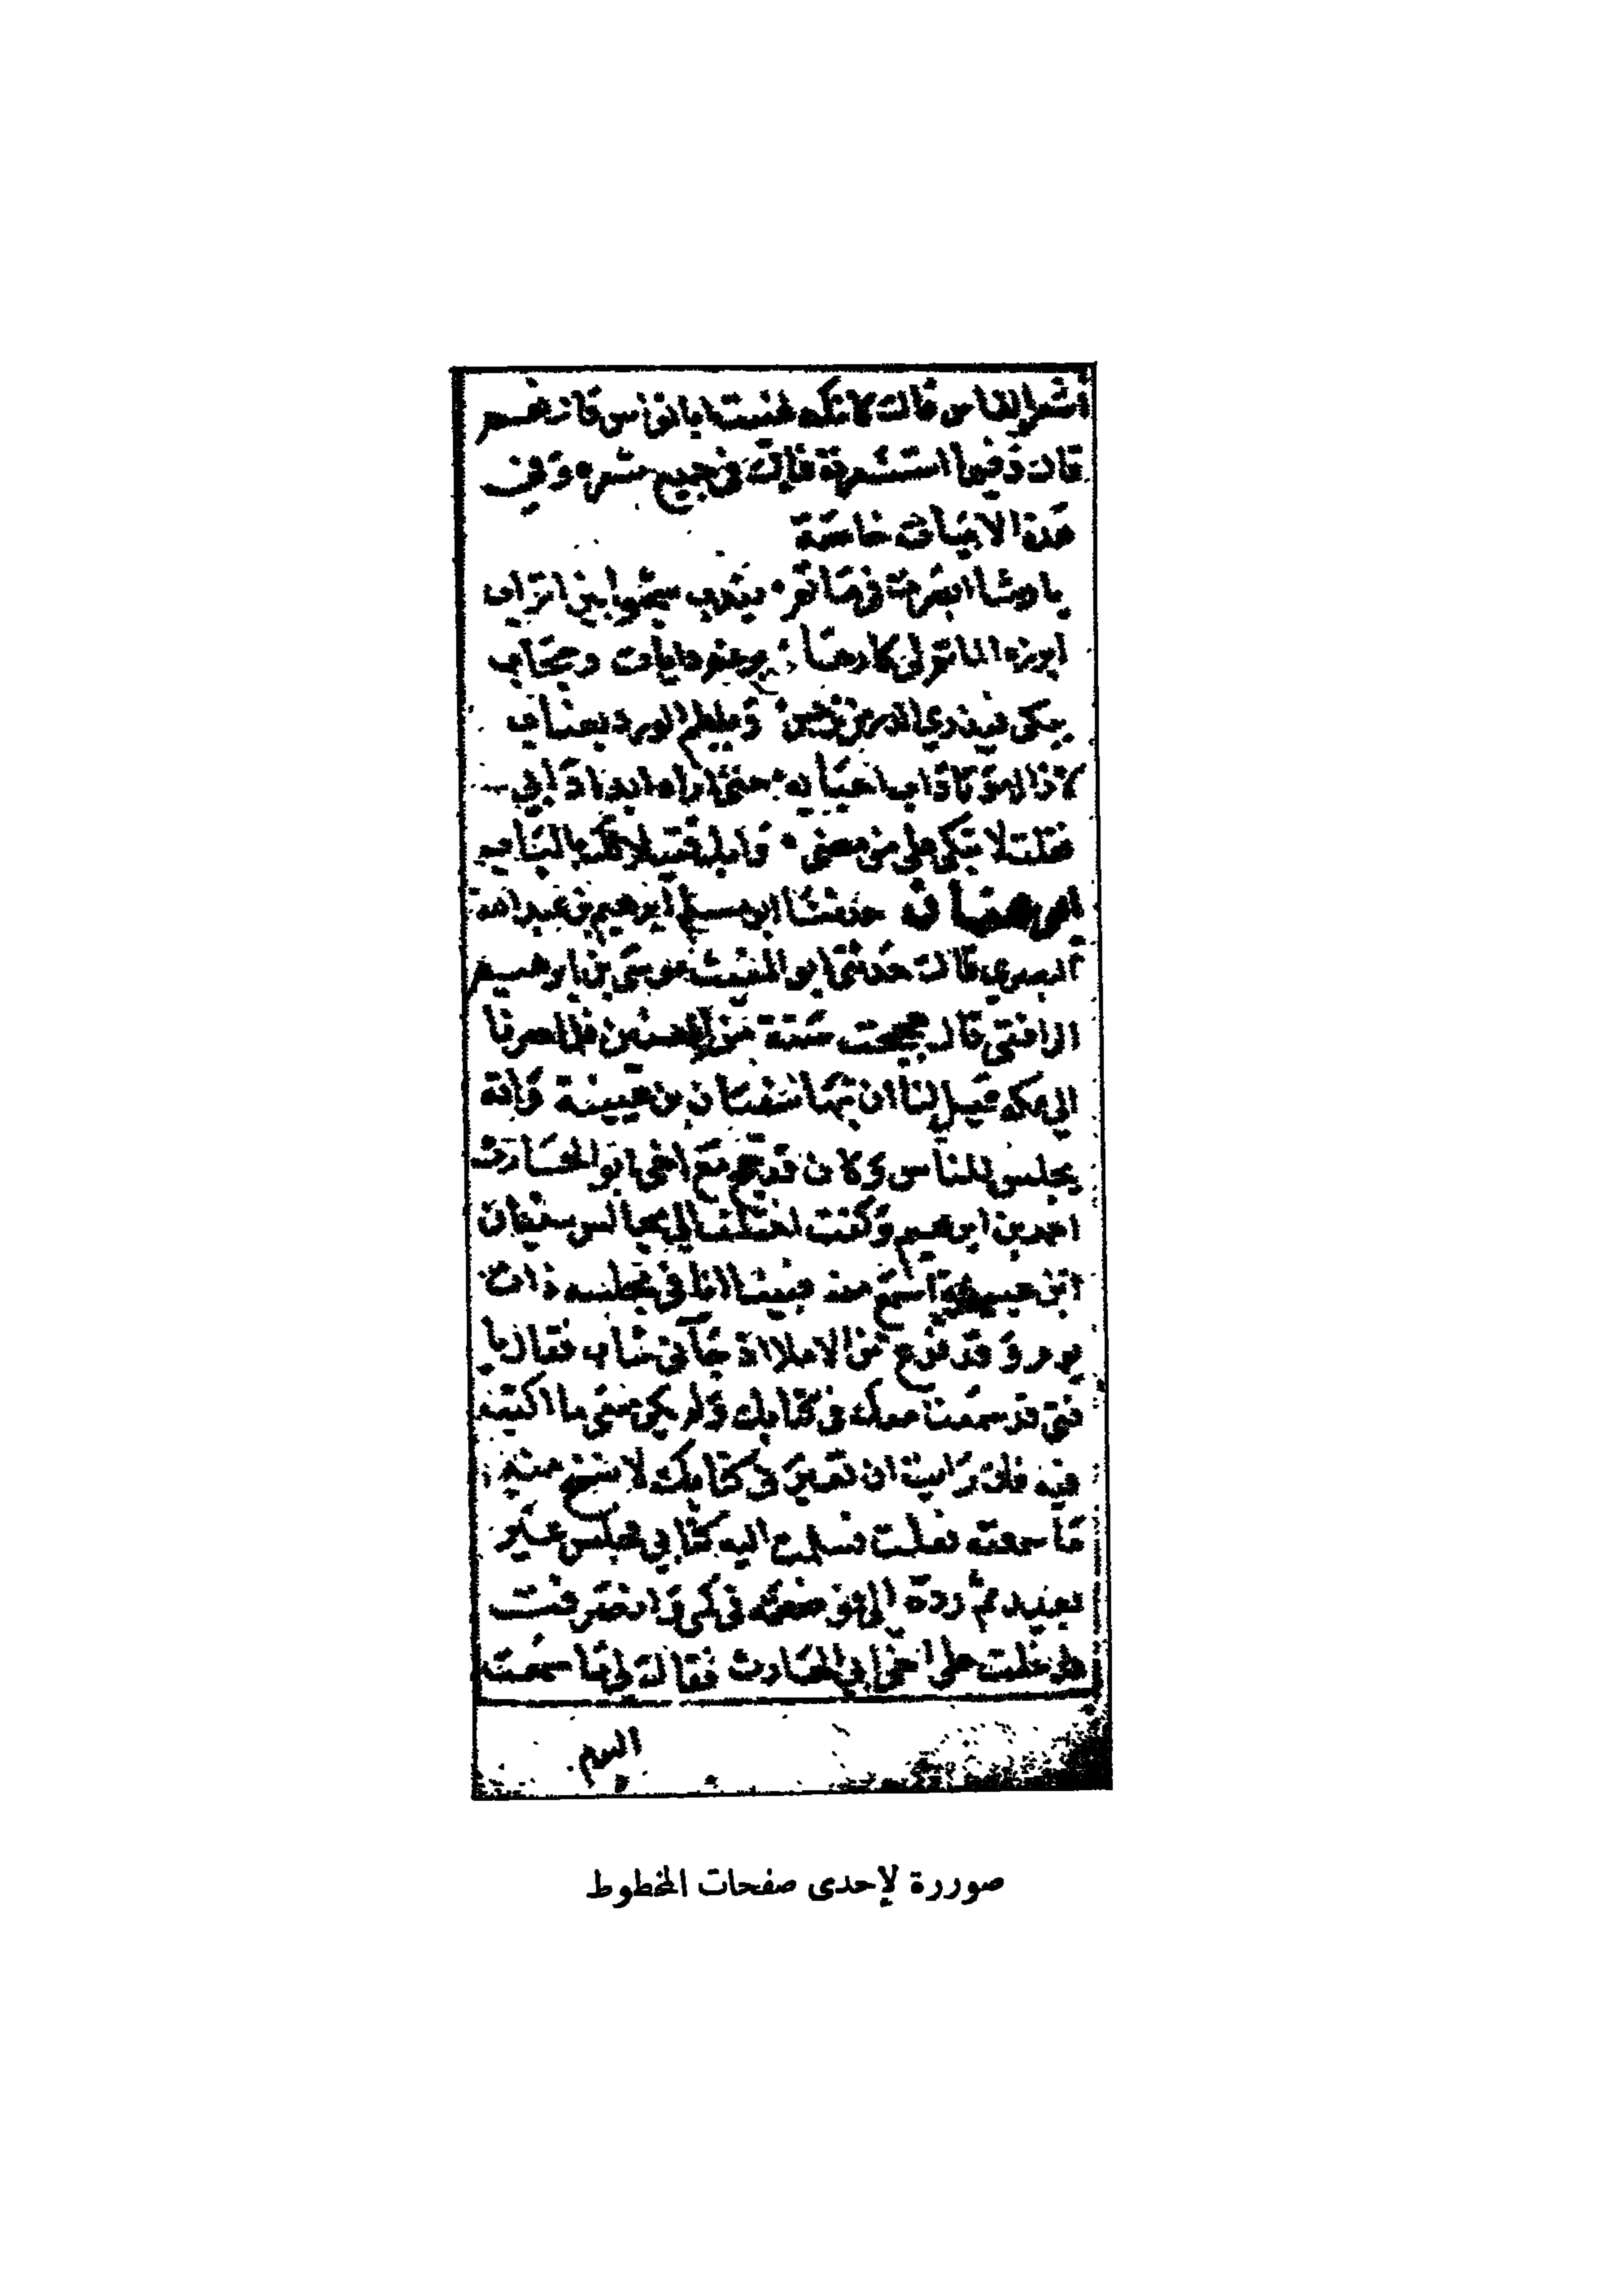 أشعر الناس قال كانك عنيت ابا نواس قال نعم
قال وفيما استشعرته قال في جميع شعره وفي
هذه الابيات خاصة
يا قمرا ابصرت في مأتم يندب شجوا بين اتراب
ابرزه الماتم لي كارها برغم دايات وحجاب
يبكي فيذري الدر من نرجس ويلطم الورد بعناب
لا زال موتا داب احبابه حتى اراه ابدا دابي
فقلت لا تبكي على من مضى وابك قتيلا لك بالباب
ابو هفان حدثنا ابن مسلم ابرهيم بن عبد الله
البصري قال حدثني ابو المغيث موسى بن ابرهيم
الرافقي قال حججت سنة من السنين فلما صرنا
الى مكه قيل لنا ان بها سفيان بن عيينة وانه
يجلس للناس وكان قد حج مع اخي ابو الحارث
احمد بن ابرهيم وكنت اختلف الى مجالس سفيان
ابن عيينة اسمع منه فبينا انا في مجلسه ذات
يوم وقد فرغ من الاملا اذ جاني شاب فقال يا
فتى قد سمعت معك في كتابك ولم يكن معي ما اكتبه
فيه فان رايت ان تعيرني كتابك لانسخ منه
ما سمعته فعلت فسلمت اليه كتابي فجلس غير
بعيد ثم رده الي فوضعته في كمي وانصرفت
فدخلت على اخي ابي الحارث فقال لي ما سمعت
اليوم
صوررة لإحدى صفحات المخطوط